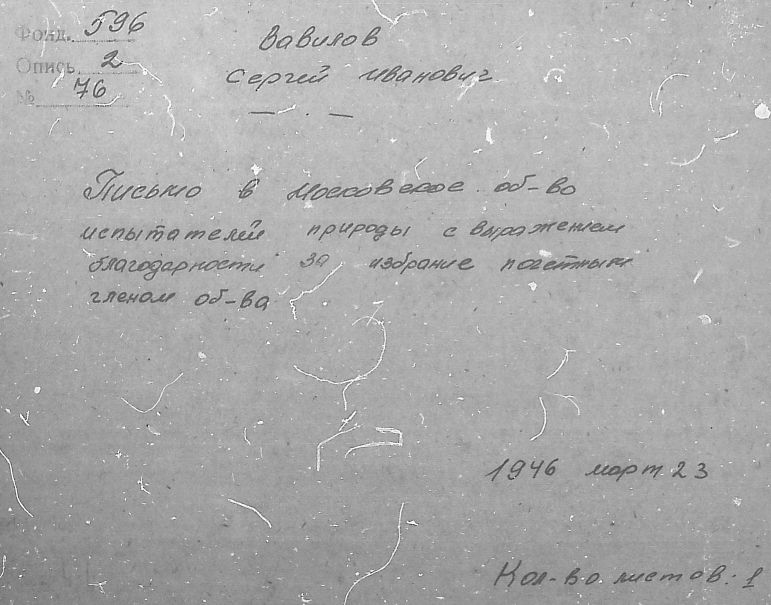 Фонд. 596
Опись 2
№ 76
Вавилов
Сергей Иванович
Письмо в Московское об-во
испытателей природы с выражением
благодарности за избрание почетным
членом об-ва
1946 март 23
Кол-во листов: 1